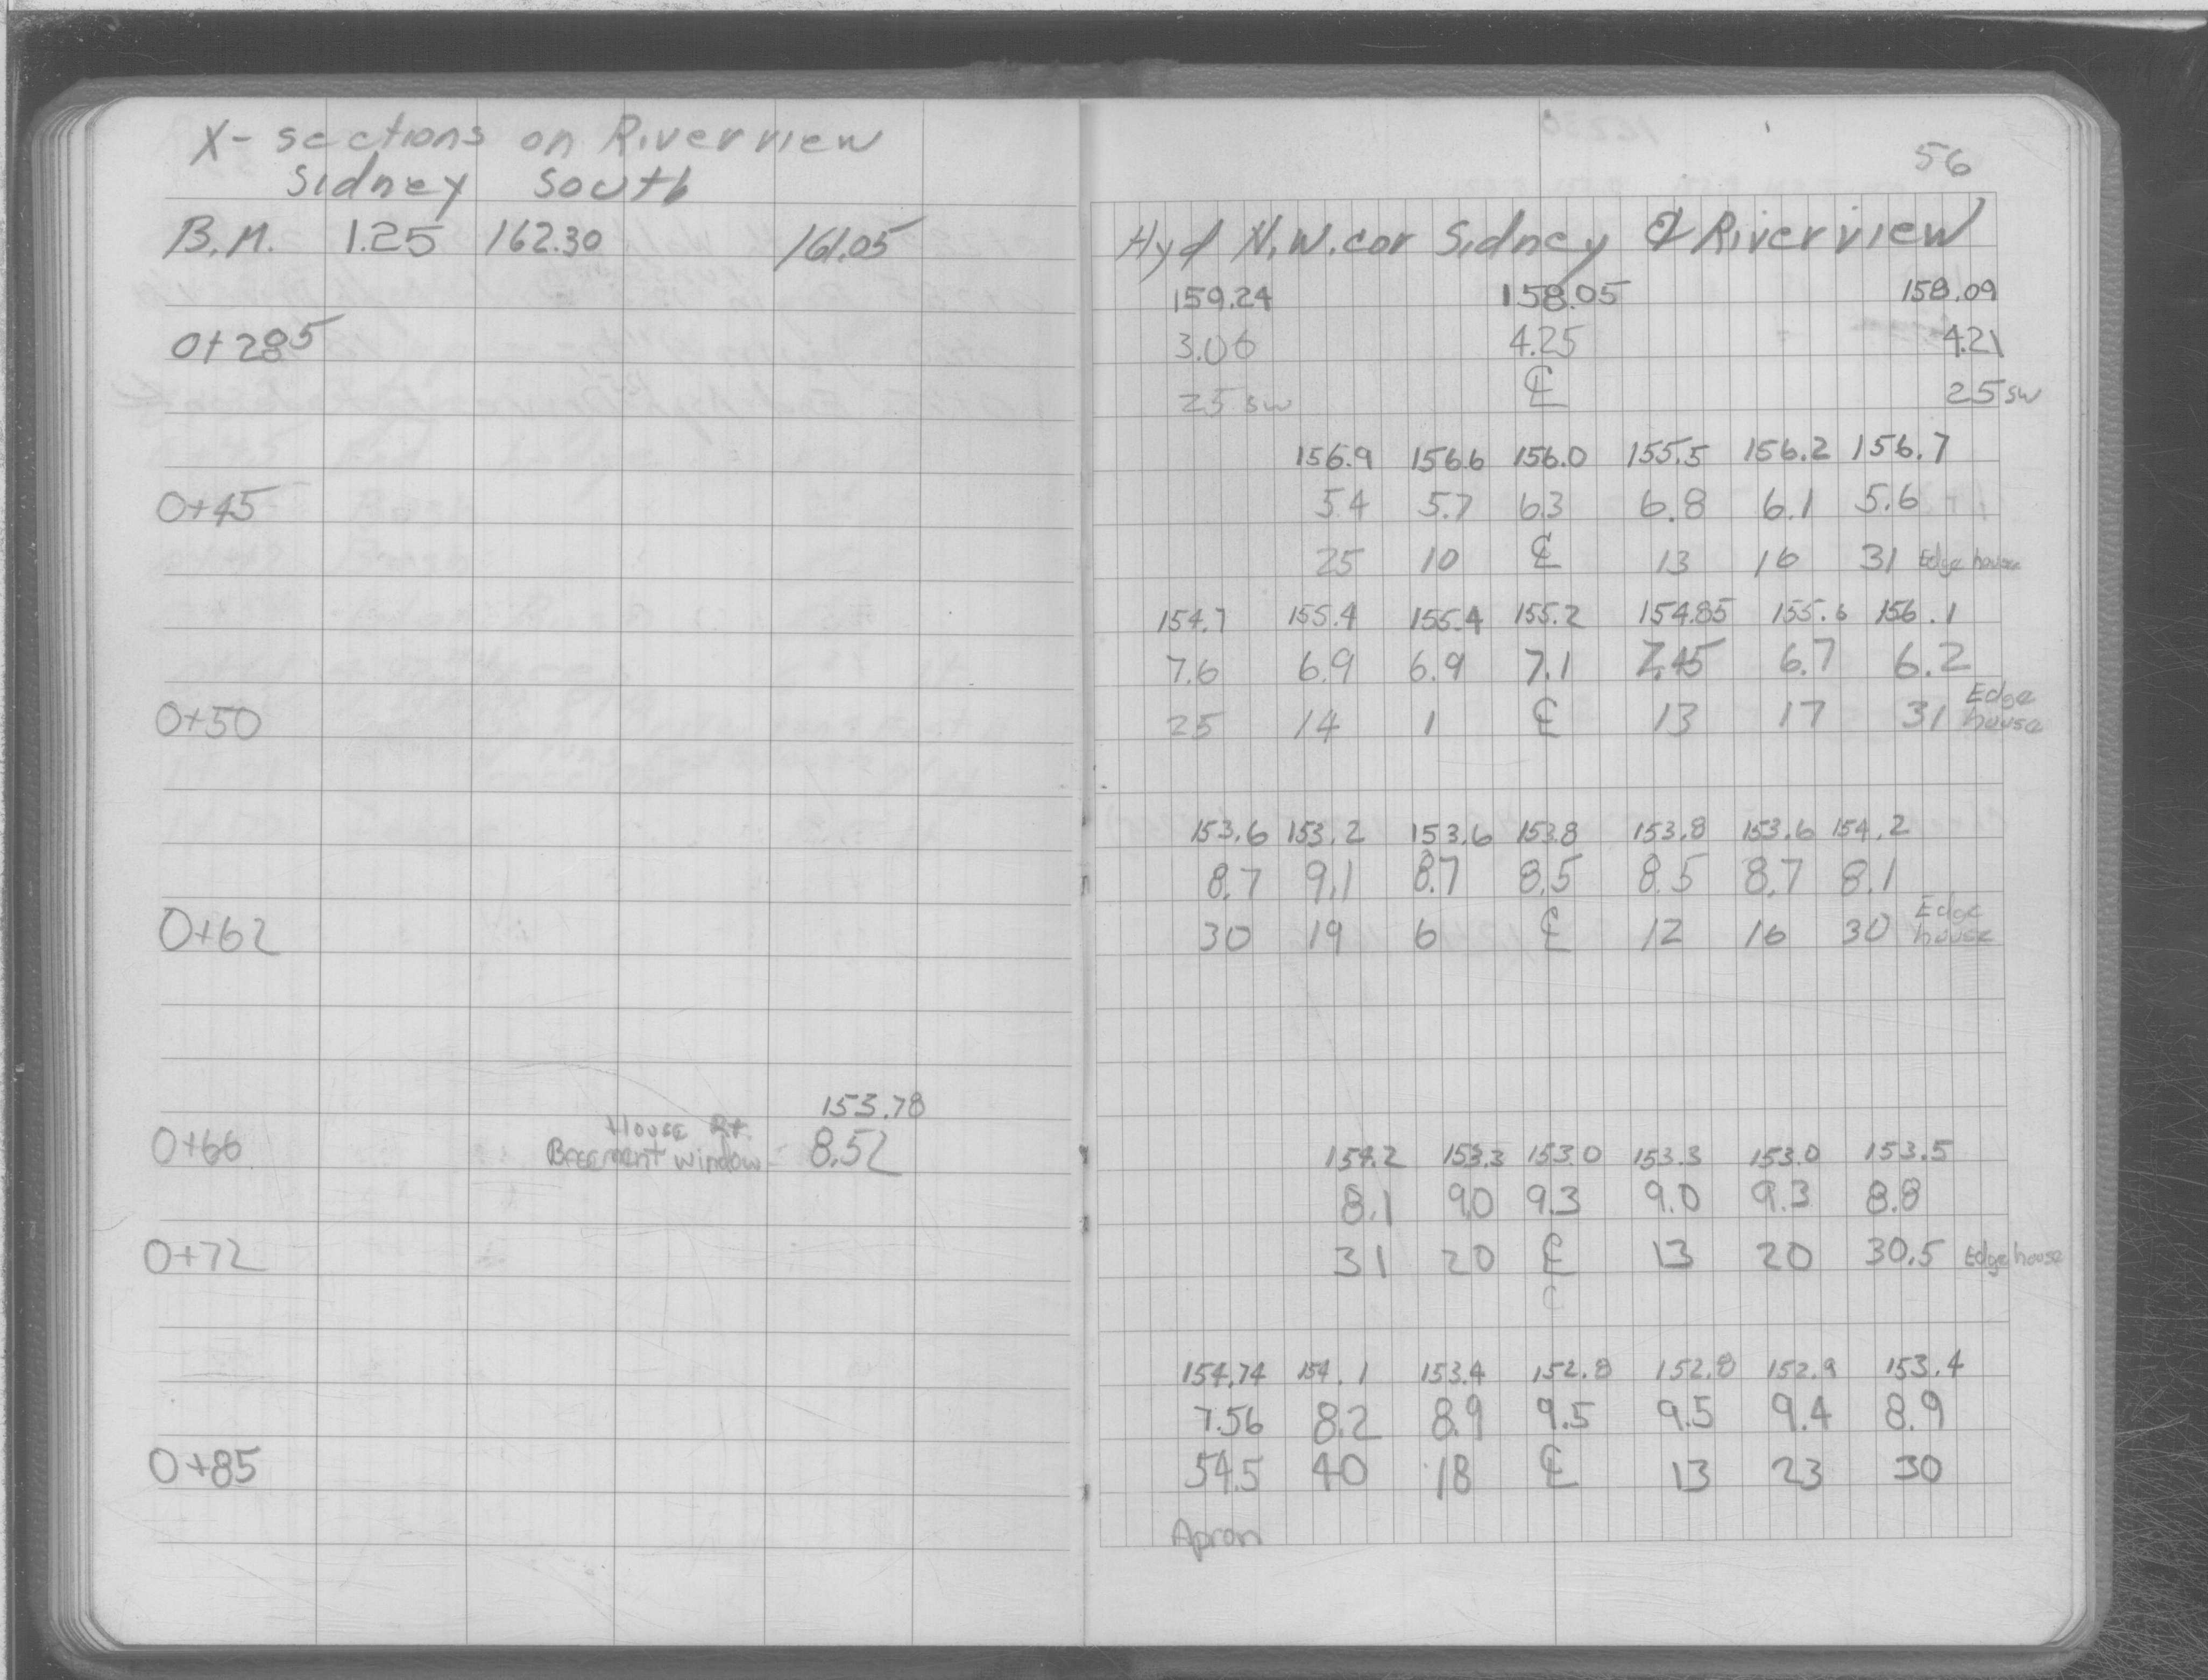 X-sections on Riverview
Sidney South
B.M. 1.25 162.30 161.05
0+28⁵
0+45
0+50
0+62
153.78
House Rt.
0+66 Basement window - 8.52
0+72
0+85
56
Hyd N.W. cor Sidney & Riverview
159.24 158.05 158.09
3.06 4.25 4.21
25 sw ℄ 25 sw
156.9 156.6 156.0 155.5 156.2 156.7
5.4 5.7 6.3 6.8 6.1 5.6
25 10 ℄ 13 16 31 Edge house
154.7 155.4 155.4 155.2 154.85 155.6 156.1
7.6 6.9 6.9 7.1 7.45 6.7 6.2
25 14 1 ℄ 13 17 31 Edge house
153.6 153.2 153.6 153.8 153.8 153.6 154.2
8.7 9.1 8.7 8.5 8.5 8.7 8.1
30 19 6 ℄ 12 16 30 Edge house
154.2 153.3 153.0 153.3 153.0 153.5
8.1 9.0 9.3 9.0 9.3 8.8
31 20 ℄ 13 20 30.5 Edge house
154.74 154.1 153.4 152.8 152.8 152.9 153.4
7.56 8.2 8.9 9.5 9.5 9.4 8.9
54.5 40 18 ℄ 13 23 30
Apron